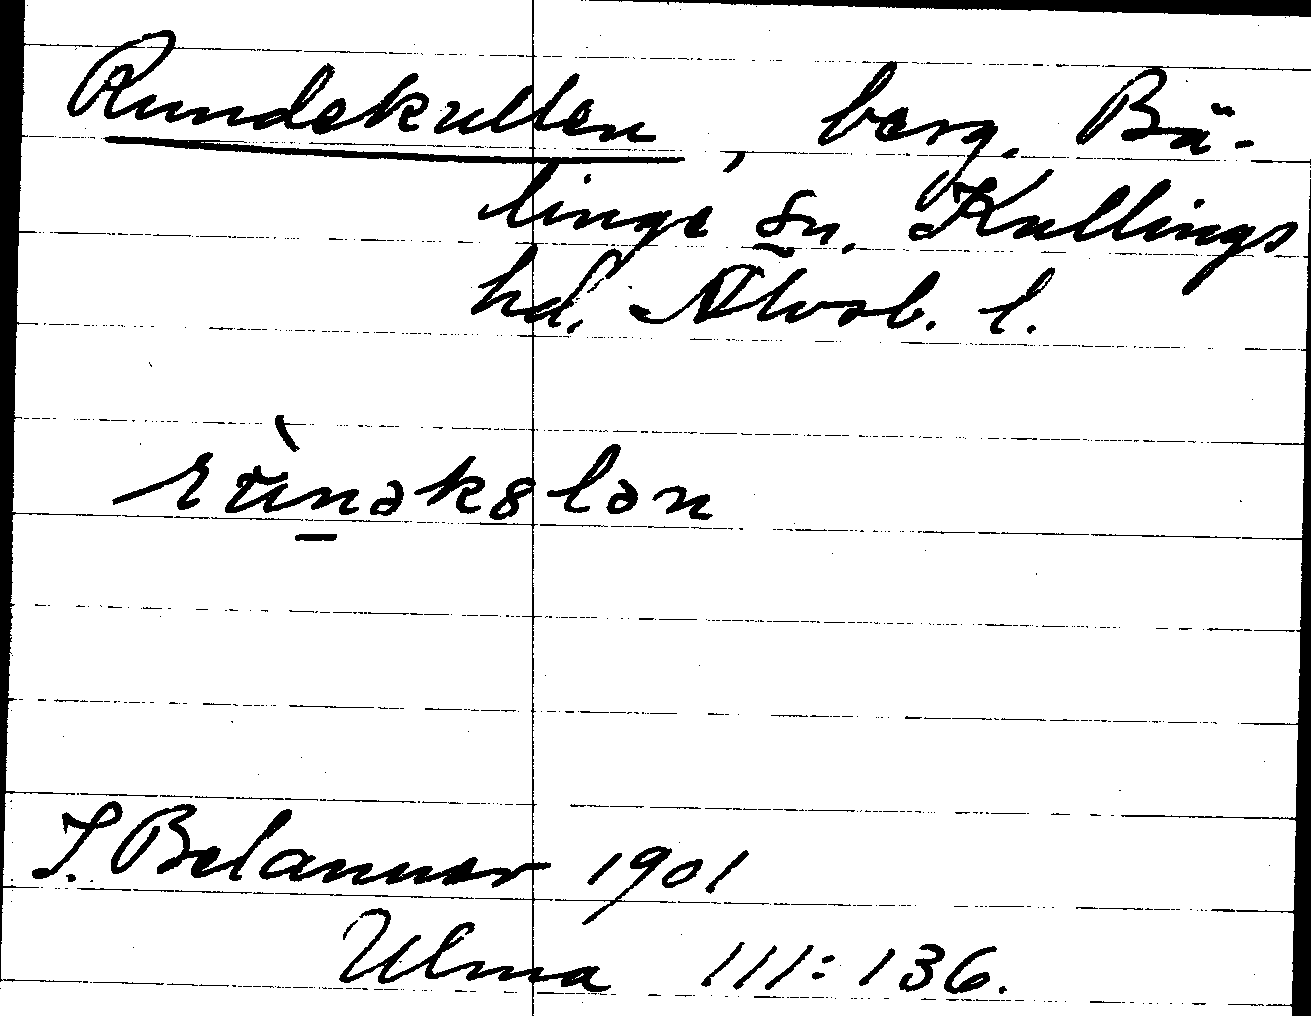 Rundekullen, berg. Bä-
linge sn. Kullings
hd. Älvsb. l.
rùnəkələn
J. Belanner 1901
Ulma 111:136.